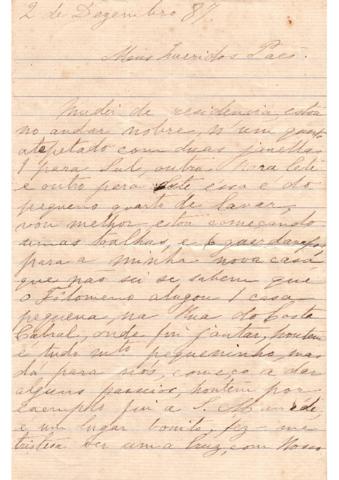 2 de Dezembro 87.
Meus Queridos Paes.
Mudei de residencia, estou
no andar nobre, n'um quarto
atapetado com duas janellas
1 para Sul, outra para Leste
e outro para essa e do
pequeno quarto de lavar,
vou melhor estou começando
umas toalhas, e
para a minha nova casa
que não sei se sabem que
o Filomeno alugou 1 casa
pequena, na Rua do Costa
Cabral, onde fui jantar, hontem
é tudo mto pequeninho, mas
dá para nós, começo a dar
alguns passeios, hontem por
exemplo fui a S. Mamede
é um lugar bonito, fez-me
tristeza ver uma Cruz, com Nosso